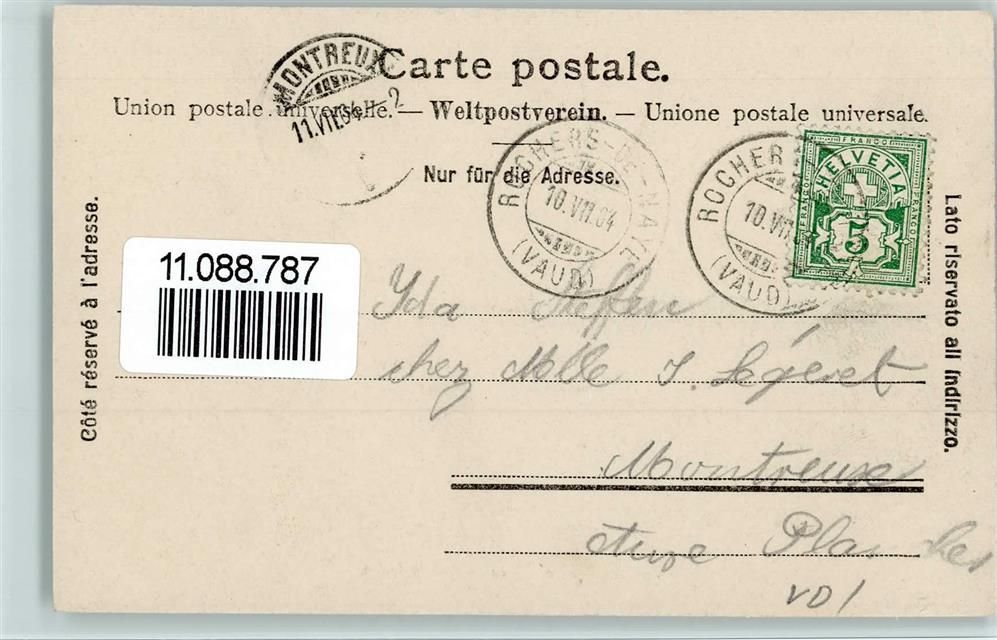 Carte postale.
MONTREUX
11.VII.04.-2
Union postale universelle. — Weltpostverein. — Unione postale universale.
Nur für die Adresse.
ROCHERS-DE-NAYE
10.VII.04
(VAUD)
ROCHERS
10.VII.04
(VAUD)
FRANCO
HELVETIA
FRANCO
FRANCO
5
Côté réservé à l'adresse.
Lato riservato all indirizzo.
11.088.787
Ida Steffen
chez Mlle J. Ségeret
Montreux
aux Planches
VD /